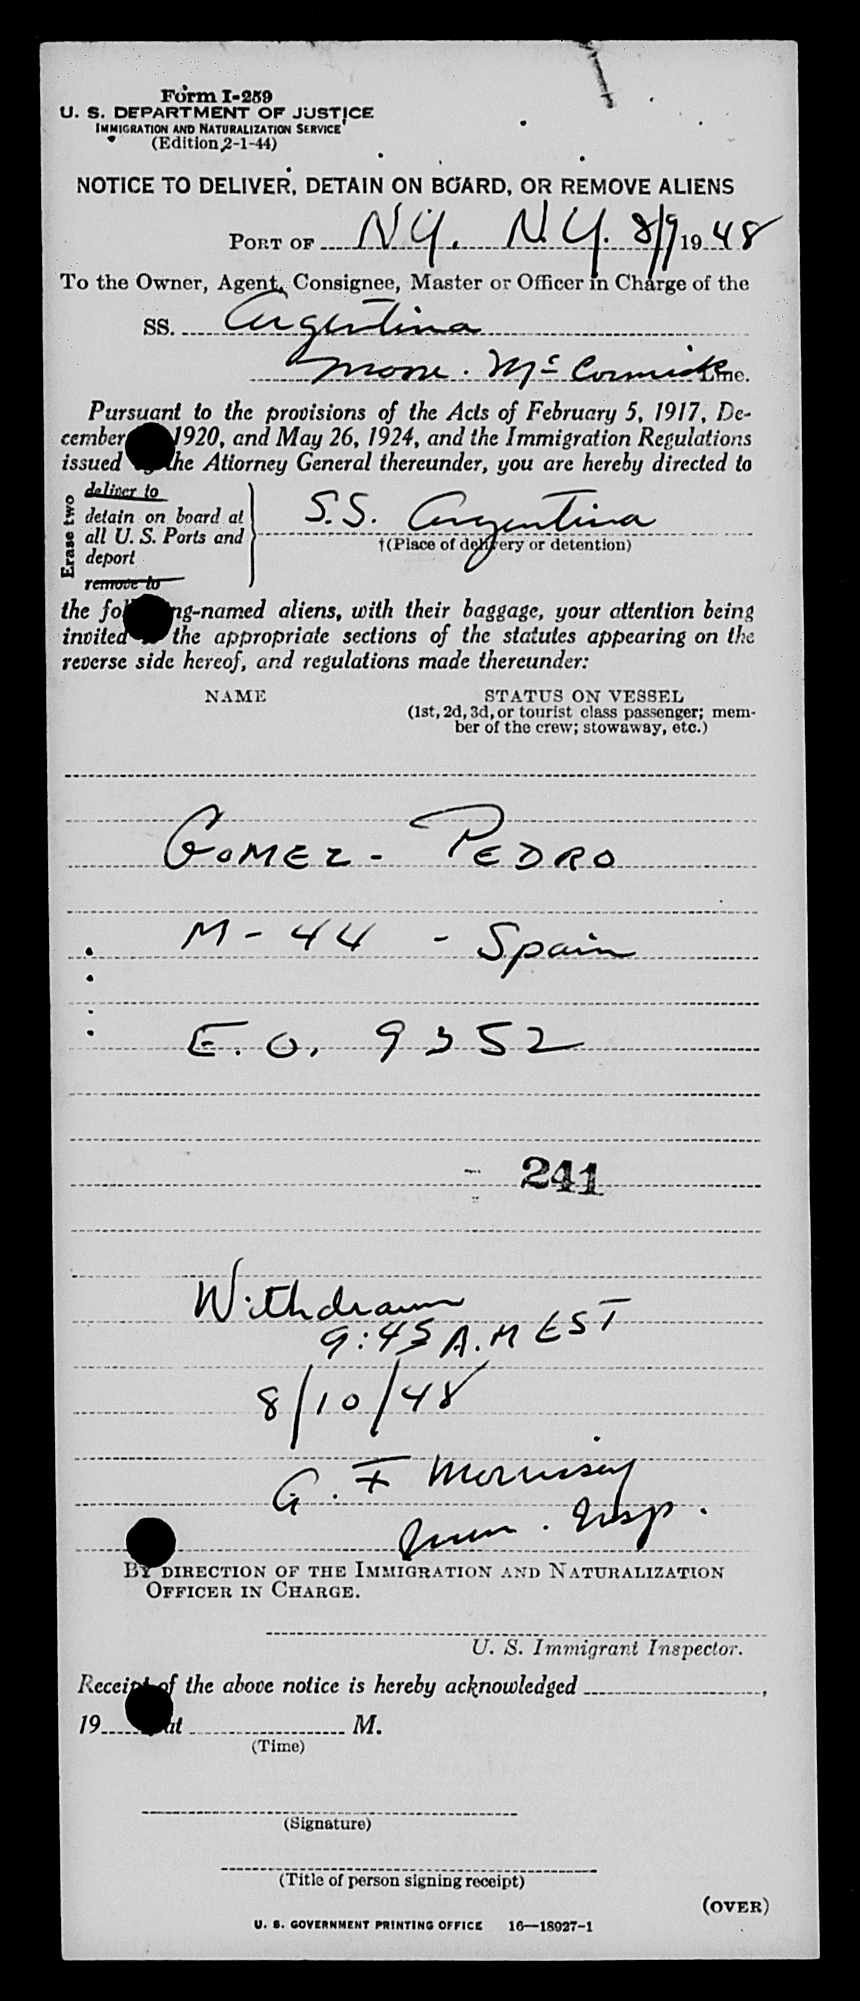 Form I-259
U. S. DEPARTMENT OF JUSTICE
IMMIGRATION AND NATURALIZATION SERVICE
(Edition 2-1-44)
NOTICE TO DELIVER, DETAIN ON BOARD, OR REMOVE ALIENS
PORT OF NY. N.Y. 8/9 1948
To the Owner, Agent, Consignee, Master or Officer in Charge of the
SS. Argentina
Moore. McCormick Line.
Pursuant to the provisions of the Acts of February 5, 1917, De-
cember 1920, and May 26, 1924, and the Immigration Regulations
issued the Attorney General thereunder, you are hereby directed to
Erase two
deliver to
detain on board at
all U. S. Ports and
deport
remove to
S.S. Argentina
†(Place of delivery or detention)
the following-named aliens, with their baggage, your attention being
invited the appropriate sections of the statutes appearing on the
reverse side hereof, and regulations made thereunder:
NAME STATUS ON VESSEL
(1st, 2d, 3d, or tourist class passenger; mem-
ber of the crew; stowaway, etc.)
GOMEZ - PEDRO
M - 44 - Spain
E.O. 9352
241
Withdrawn
9:45 A.M EST
8/10/48
G. F Morrissey
Imm. Insp.
BY DIRECTION OF THE IMMIGRATION AND NATURALIZATION
OFFICER IN CHARGE.
U. S. Immigrant Inspector.
Receipt of the above notice is hereby acknowledged ,
19 at M.
(Time)
(Signature)
(Title of person signing receipt)
(OVER)
U. S. GOVERNMENT PRINTING OFFICE 16—18927-1